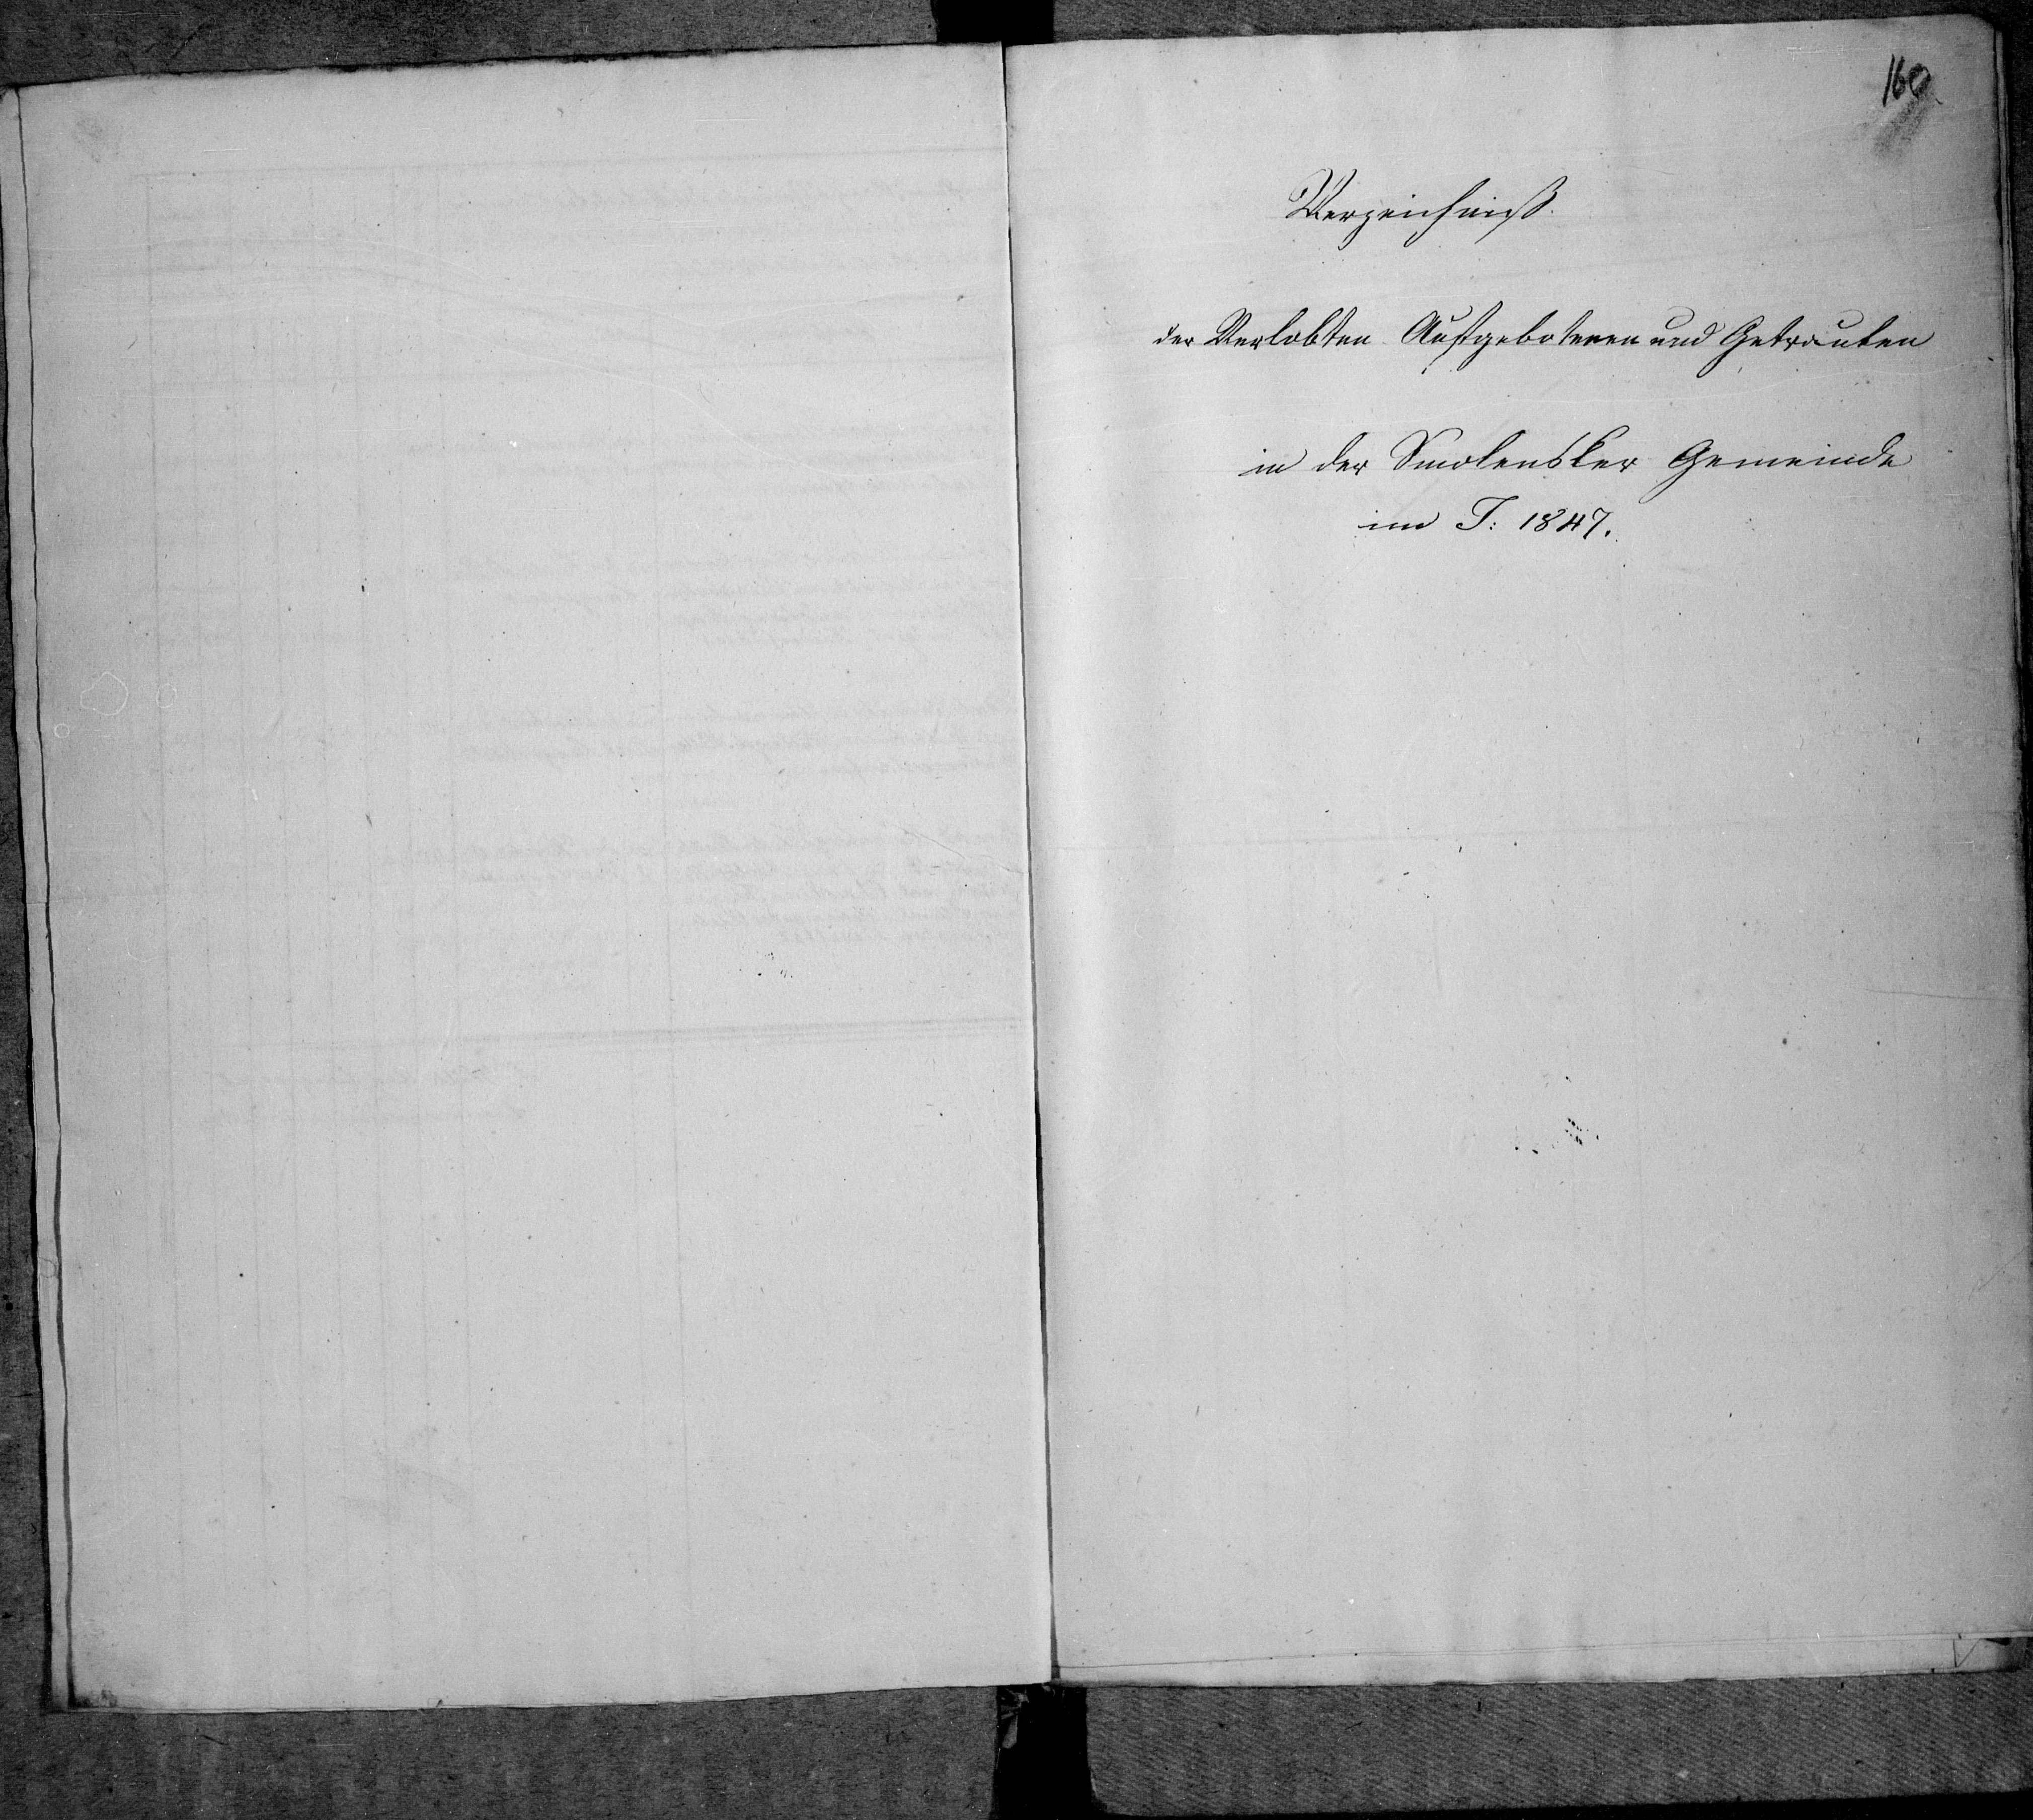 160
Verzeichniß.
der Verlobten Aufgebotenen und Getrauten
in der Smolensker Gemeinde
im J: 1847.